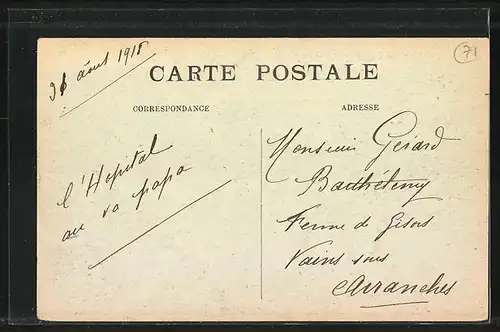 31 août 1918
71
CARTE POSTALE
CORRESPONDANCE
ADRESSE
l'Hopital
au va papa
Monsieur Gérard
Barthélemy
Ferme de Gisors
Vains sous
Avranches